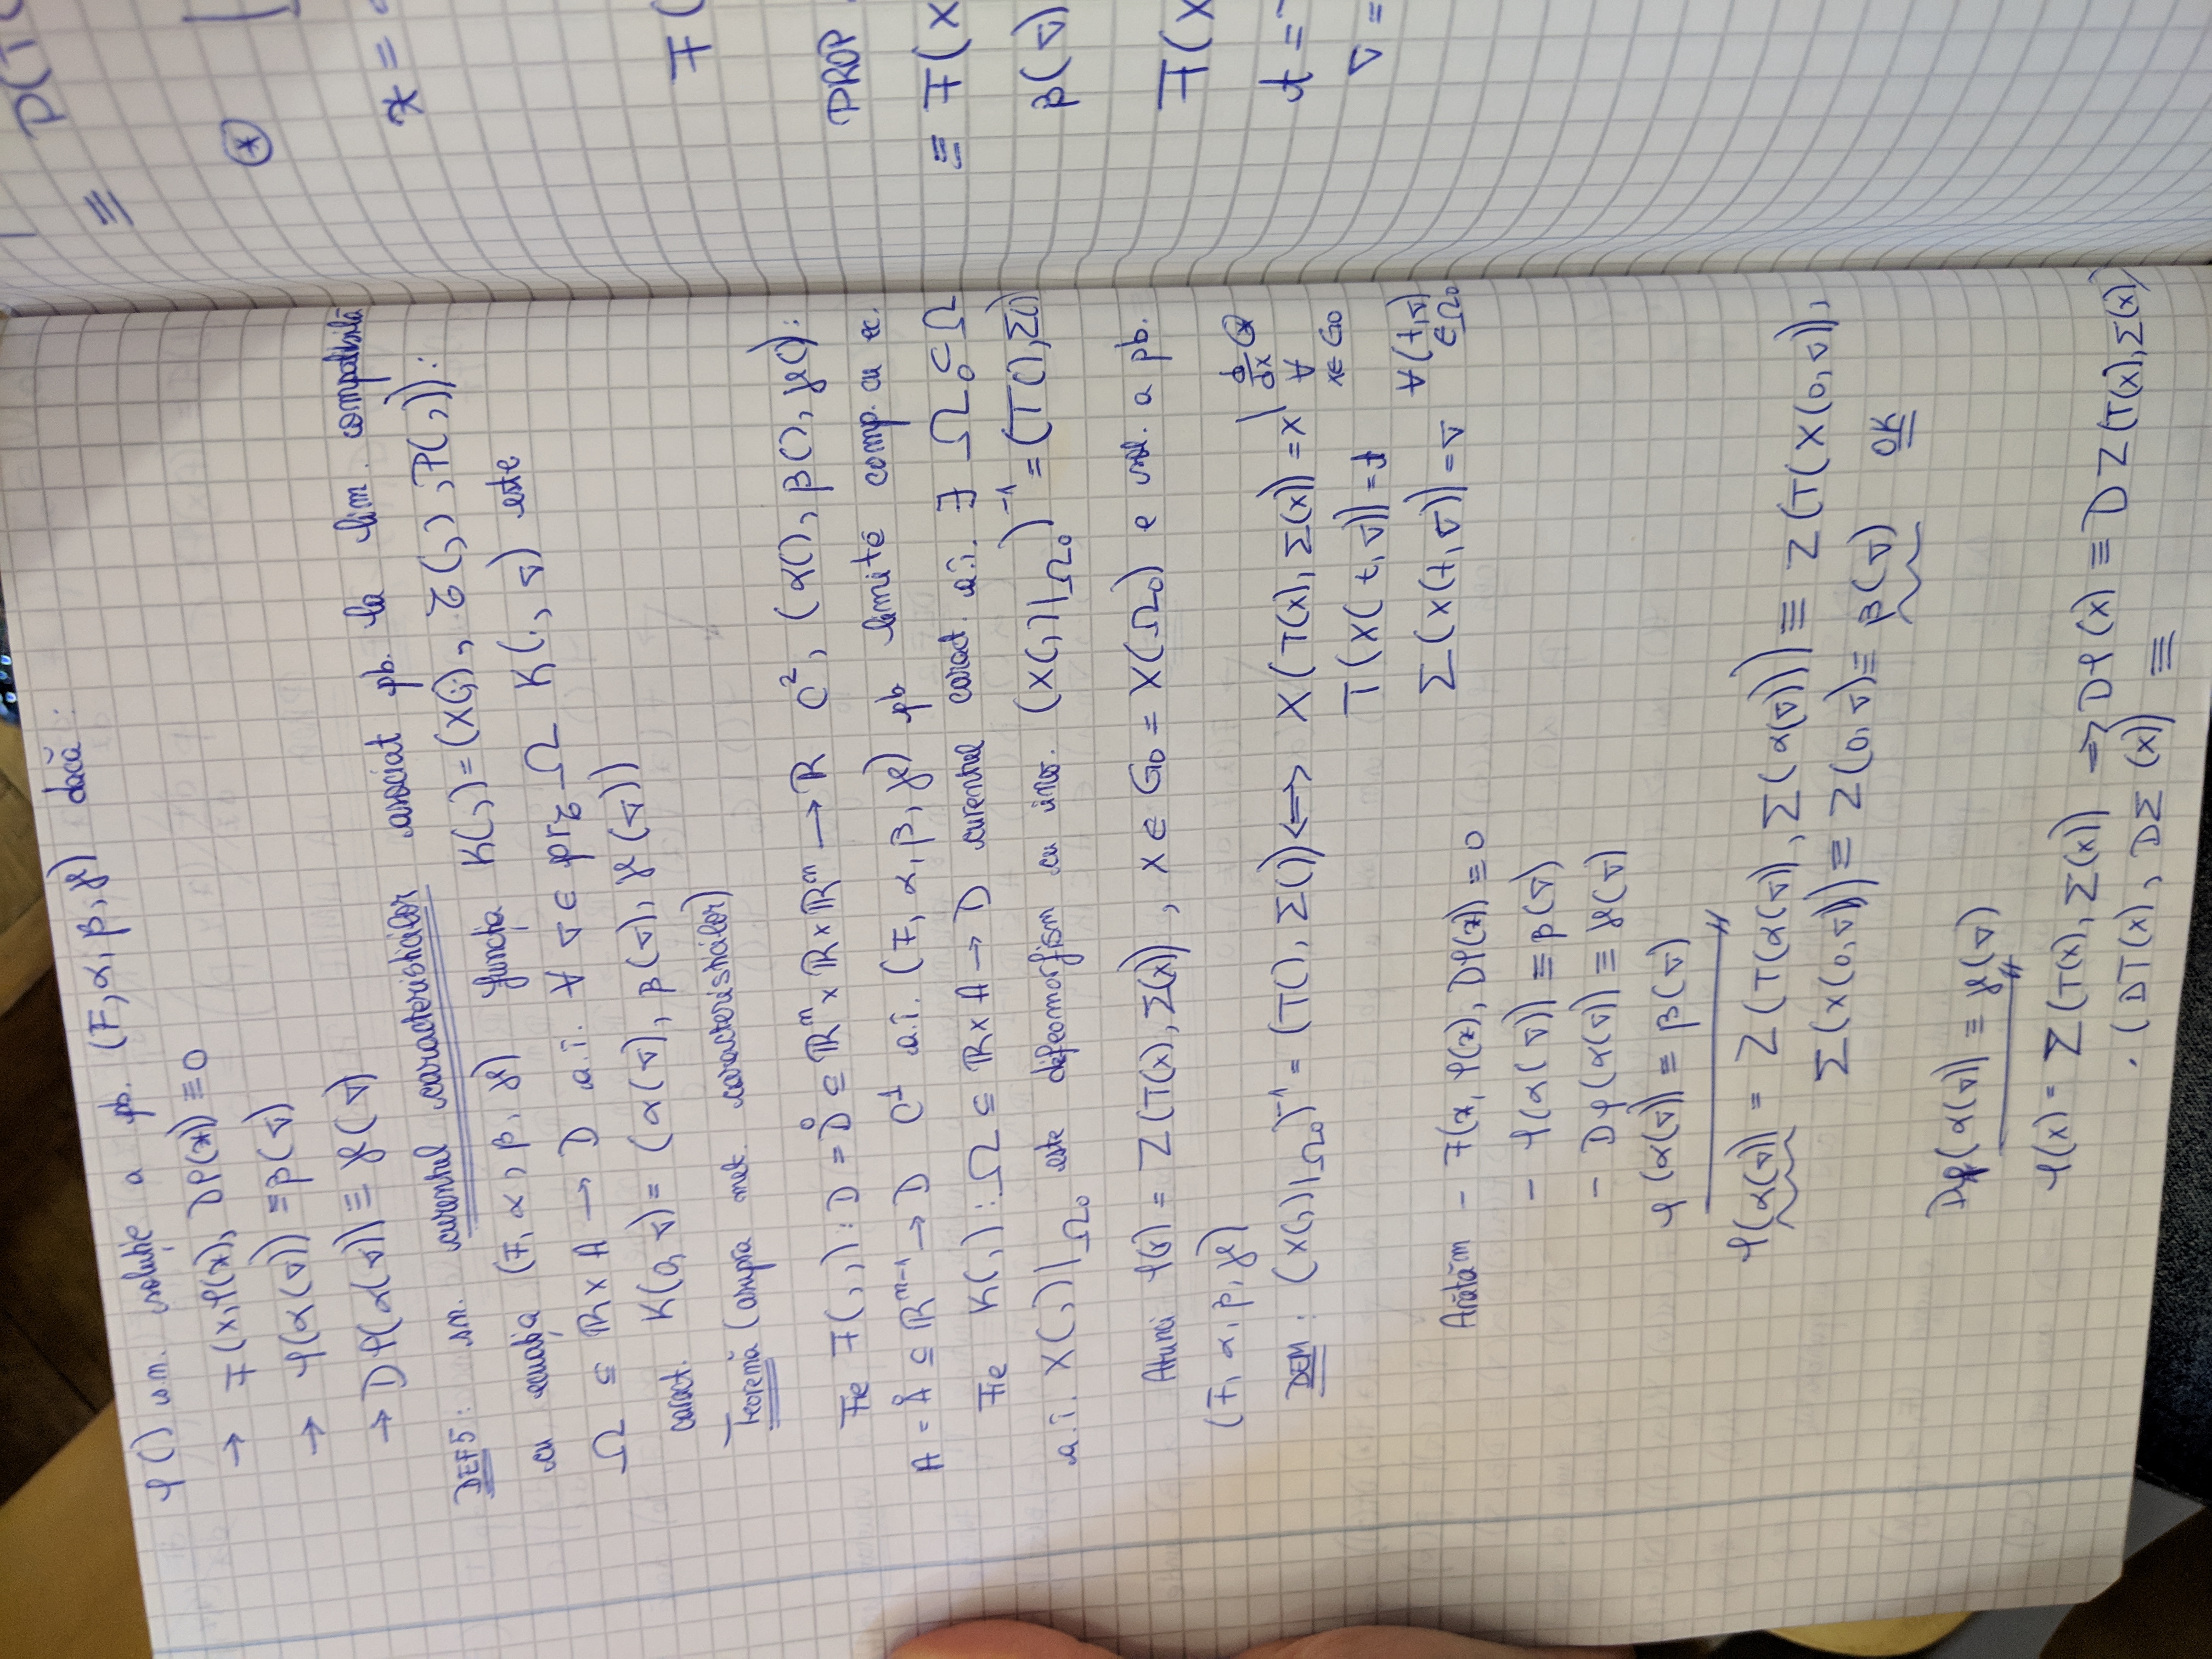 φ() s.n. soluție a pb. (F, α, β, γ) dacă :
→ F(x, φ(x), Dφ(x)) ≡ 0
→ φ(α(σ)) ≡ β(σ)
→ Dφ(α(σ)) ≡ γ(σ)
DEF5: s.n. curentul caracteristicilor asociat pb. la lim. compatibilă
cu ecuația (F, α, β, γ) funcția K(,) = (X(,), Z(,), P(,)):
Ω ⊆ ℝ×A → D a.î. ∀ σ ∈ pr₂ Ω K(·, σ) este
caract. K(0, σ) = (α(σ), β(σ), γ(σ))
Teoremă (asupra met. caracteristicilor)
Fie F(,,) : D = D̊ ⊆ ℝⁿ × ℝ × ℝⁿ → ℝ C², (α(), β(), γ()):
A = Å ⊆ ℝⁿ⁻¹ → D C¹ a.î. (F, α, β, γ) pb limită comp. cu ec.
Fie K(,) : Ω ⊆ ℝ×A → D curentul caract. a.î. ∃ Ω₀ ⊂ Ω
a.î. X(,)|Ω₀ este difeomorfism cu inv. (X(,)|Ω₀)⁻¹ = (T(), Σ())
Atunci φ(x) = Z(T(x), Σ(x)), x ∈ G₀ = X(Ω₀) e sol. a pb.
(F, α, β, γ)
DEM : (X(,)|Ω₀)⁻¹ = (T(), Σ()) ⟺ X(T(x), Σ(x)) = x | d/dx ⊛ ∀ x ∈ G₀
T(X(t, σ)) = t
Σ(X(t, σ)) = σ ∀ (t, σ) ∈ Ω₀
Arătăm - F(x, φ(x), Dφ(x)) ≡ 0
- φ(α(σ)) ≡ β(σ)
- Dφ(α(σ)) ≡ γ(σ)
φ(α(σ)) ≡ β(σ)
φ(α(σ)) = Z(T(α(σ)), Σ(α(σ))) ≡ Z(T(X(0, σ)),
Σ(X(0, σ))) ≡ Z(0, σ) ≡ β(σ) OK
Dφ(α(σ)) ≡ γ(σ)
φ(x) = Σ(T(x), Σ(x)) ⇒ Dφ(x) ≡ DZ(T(x), Σ(x))
· (DT(x), DΣ(x)) ≡
≡ P(T(
⊛
x =
F(
PROP
≡ F(X
β(σ)
F(X
t =
σ =